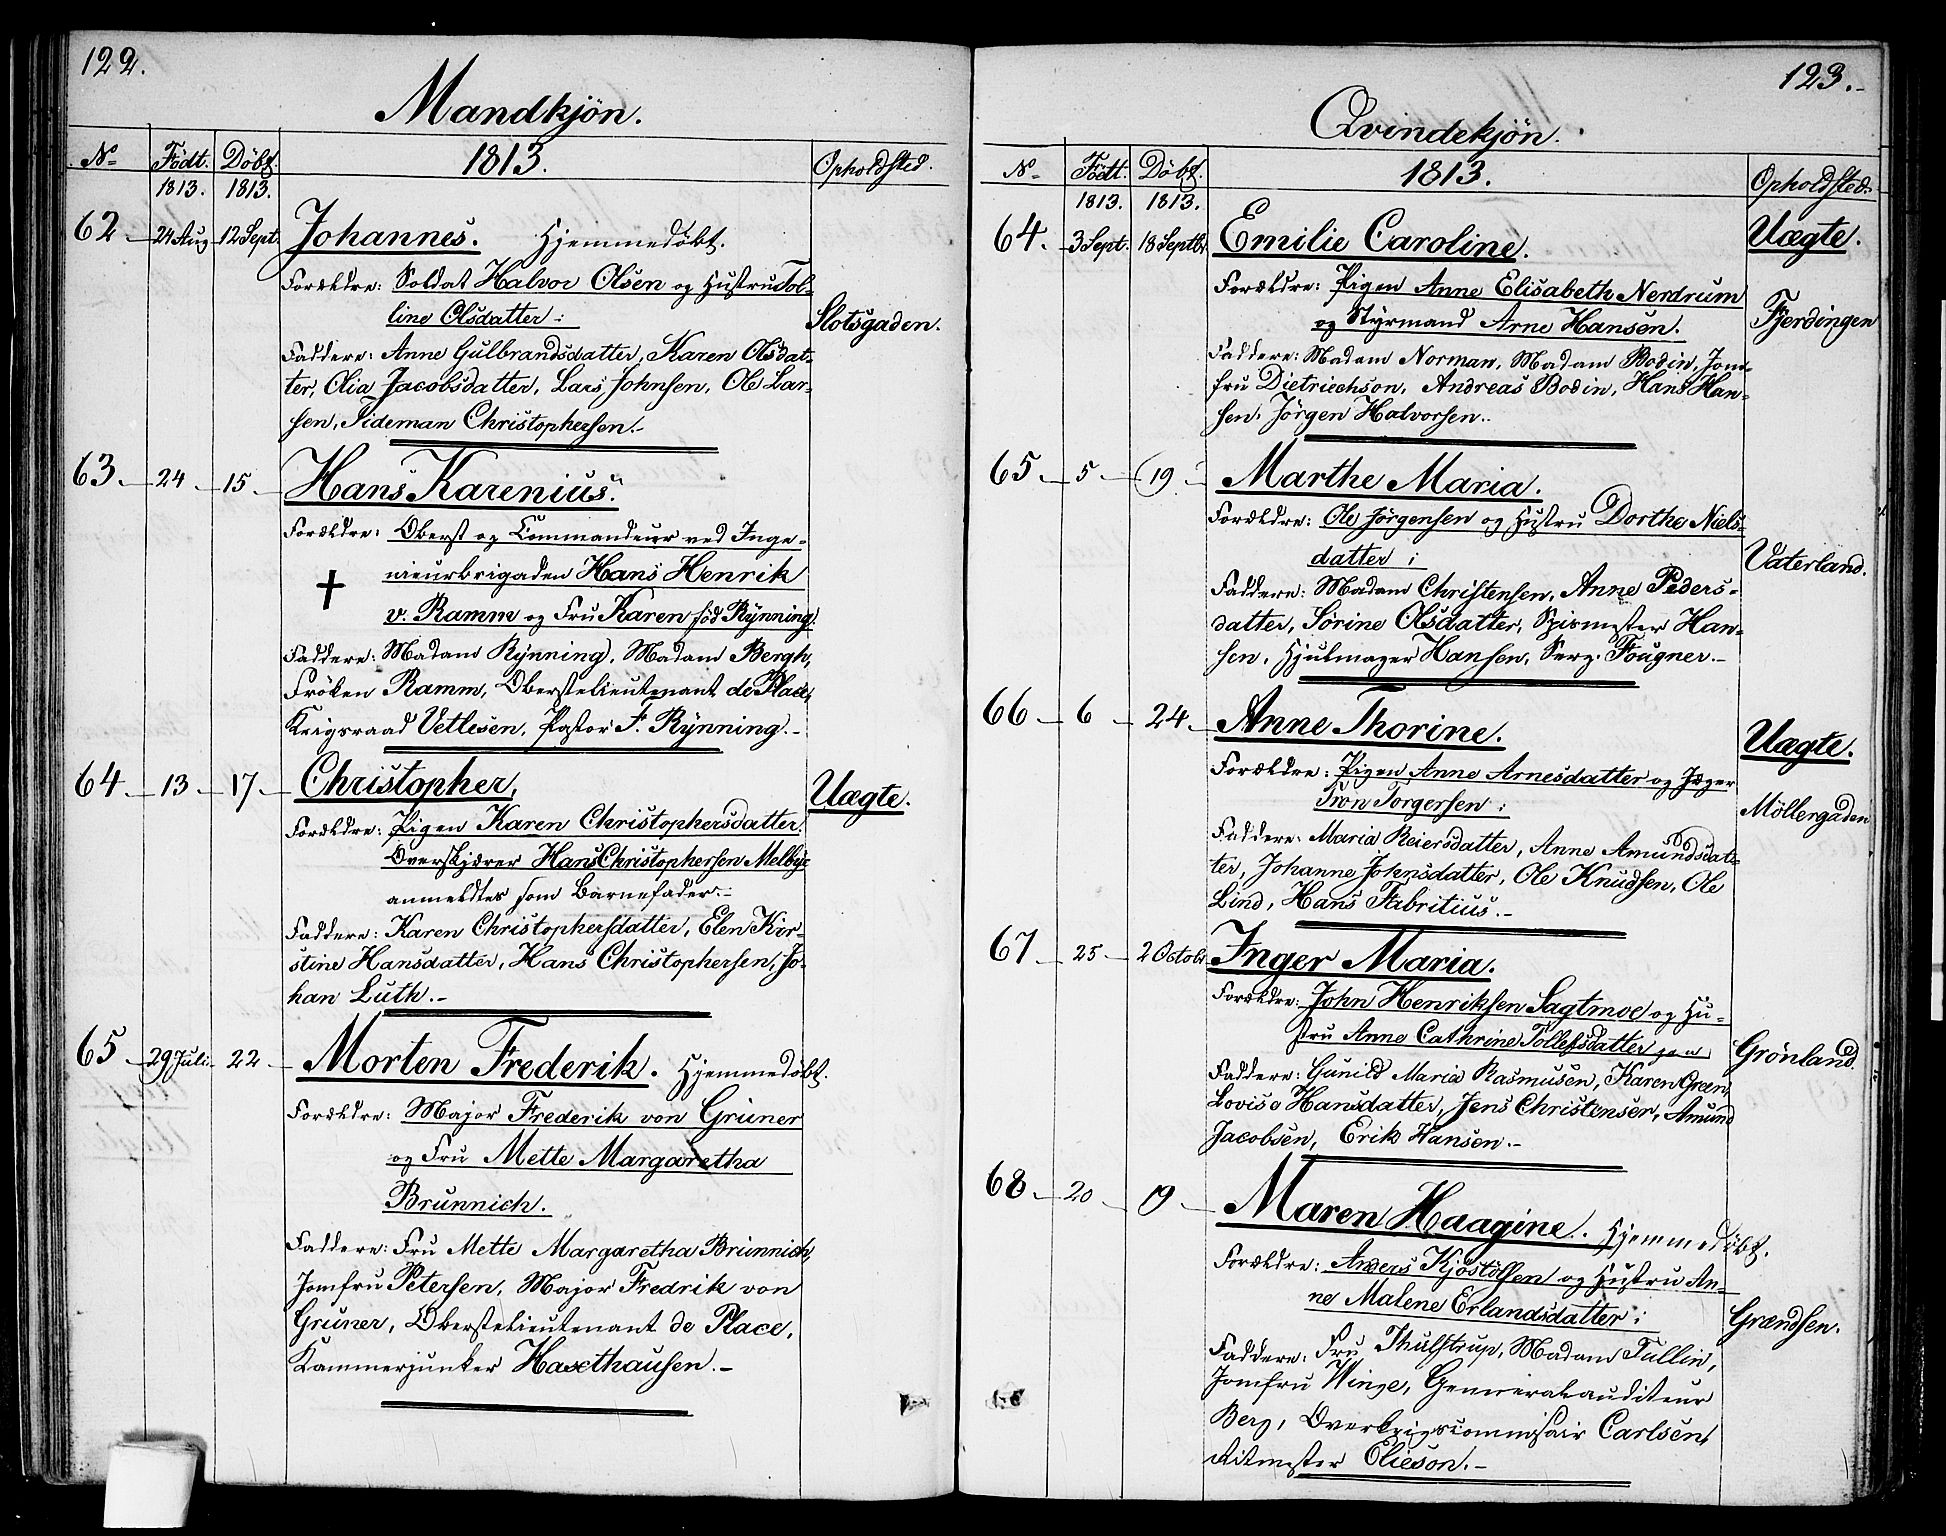 122.
Mandkjön.
No Födt. Döbt. 1813. Opholdsted.
1813. 1813.
62 24 Aug 12 Sept. Johannes. Hjemmedöbt.
Forældre: Soldat Halvor Olsen og Hustru Tol-
line Olsdatter: Slotsgaden.
Faddere: Anne Gulbrandsdatter, Karen Olsdat-
ter, Olia Jacobsdatter, Lars Johnsen, Ole Lar-
sen, Tideman Christophersen.-
63. 24 15 Hans Karenius.
Forældre: Oberst og Commandeur ved Inge-
nieurbrigaden Hans Henrik
v. Ramm og Fru Karen föd Rynning.
Faddere: Madam Rynning, Madam Bergh,
Fröken Ramm, Oberstelieutenant de Place,
Krigsraad Vetlesen, Pastor F. Rynning.-
64 13 17 Christopher, Uægte.
Forældre: Pigen Karen Christophersdatter.
Overskjærer Hans Christophersen Melbye
anmeldtes som Barnefader.-
Faddere: Karen Christophersdatter, Elen Kir-
stine Hansdatter, Hans Christophersen, Jo-
han Luth.-
65 29 Juli 22 Morten Frederik. Hjemmedöbt.
Forældre: Major Frederik von Grüner
og Fru Mette Margaretha
Brünnich.
Faddere: Fru Mette Margaretha Brünnich,
Jomfru Petersen, Major Fredrik von
Grüner, Oberstelieutenant de Place,
Kammerjunker Haxthausen.-
123.
Qvindekjön.
No Födt. Döbt. 1813. Opholdsted.
1813. 1813.
64. 3 Sept. 18 Septbr. Emilie Caroline. Uægte.
Forældre: Pigen Anne Elisabeth Nerdrum
og Styrmand Arne Hansen. Fjerdingen
Faddere: Madam Norman, Madam Bodin, Jom-
fru Dietriechson, Andreas Bodin, Hans Han-
sen, Jörgen Halvorsen.
65 5 19 Marthe Maria.
Forældre: Ole Jörgensen og Hustru Dorthe Niels-
datter: Vaterland.
Faddere: Madam Christensen, Anne Peders-
datter, Sörine Olsdatter, Spismester Han-
sen, Hjulmager Hansen, Serg. Fougner.-
66 6 24. Anne Thorine. Uægte.
Forældre: Pigen Anne Arnesdatter og Jæger
Tron Torgersen: Möllergaden
Faddere: Maria Reiersdatter, Anne Amundsdat-
ter, Johanne Johnsdatter, Ole Knudsen, Ole
Lind, Hans Fabritius.-
67 25 2 Octobr. Inger Maria.
Forældre: John Henriksen Sagtmoe og Hu-
stru Anne Cathrine Tollefsdatter Grönland.
Faddere: Gunild Maria Rasmusen, Karen Green,
Lovise Hansdatter, Jens Christensen, Amund
Jacobsen, Erik Hansen.-
68 20 19 Maren Haagine. Hjemmedöbt.
Forældre: Anders Kjöstölsen og Hustru An-
ne Malene Erlandsdatter: Grændsen.
Faddere: Fru Thulstrup, Madam Tullin,
Jomfru Winge, Generalauditeur
Berg, Overkrigscommisair Carlsen,
Ritmester Elieson.-